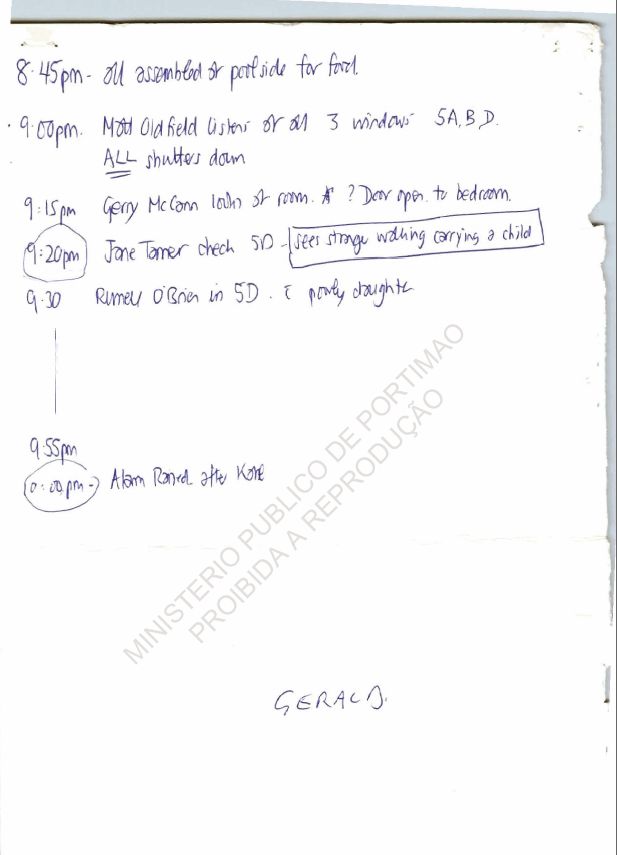 8:45pm - all assembled at poolside for food.
9:00pm. Matt Oldfield listens at all 3 windows 5A,B,D.
ALL shutters down
9:15pm Gerry McCann looks at room. A ? Door open to bedroom.
9:20pm Jane Tanner check 5D - sees stranger walking carrying a child
9:30 Russell O'Brien in 5D. c̄ poorly daughter
9:55pm
10:00pm -> Alarm Raised after Kate
MINISTERIO PUBLICO DE PORTIMAO
PROIBIDA A REPRODUÇÃO
GERALD.